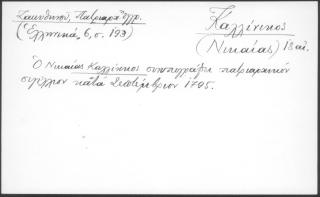 Ζακυθηνοῦ, Πατριαρχ. ἔγγρ.
(Ἑλληνικά, 6, σ. 193)
Καλλίνικος
(Νικαίας) 18 αἰ.
Ὁ Νικαίας Καλλίνικος συνυπογράφει πατριαρχικόν
σιγίλλιον κατά Σεπτέμβριον 1795.